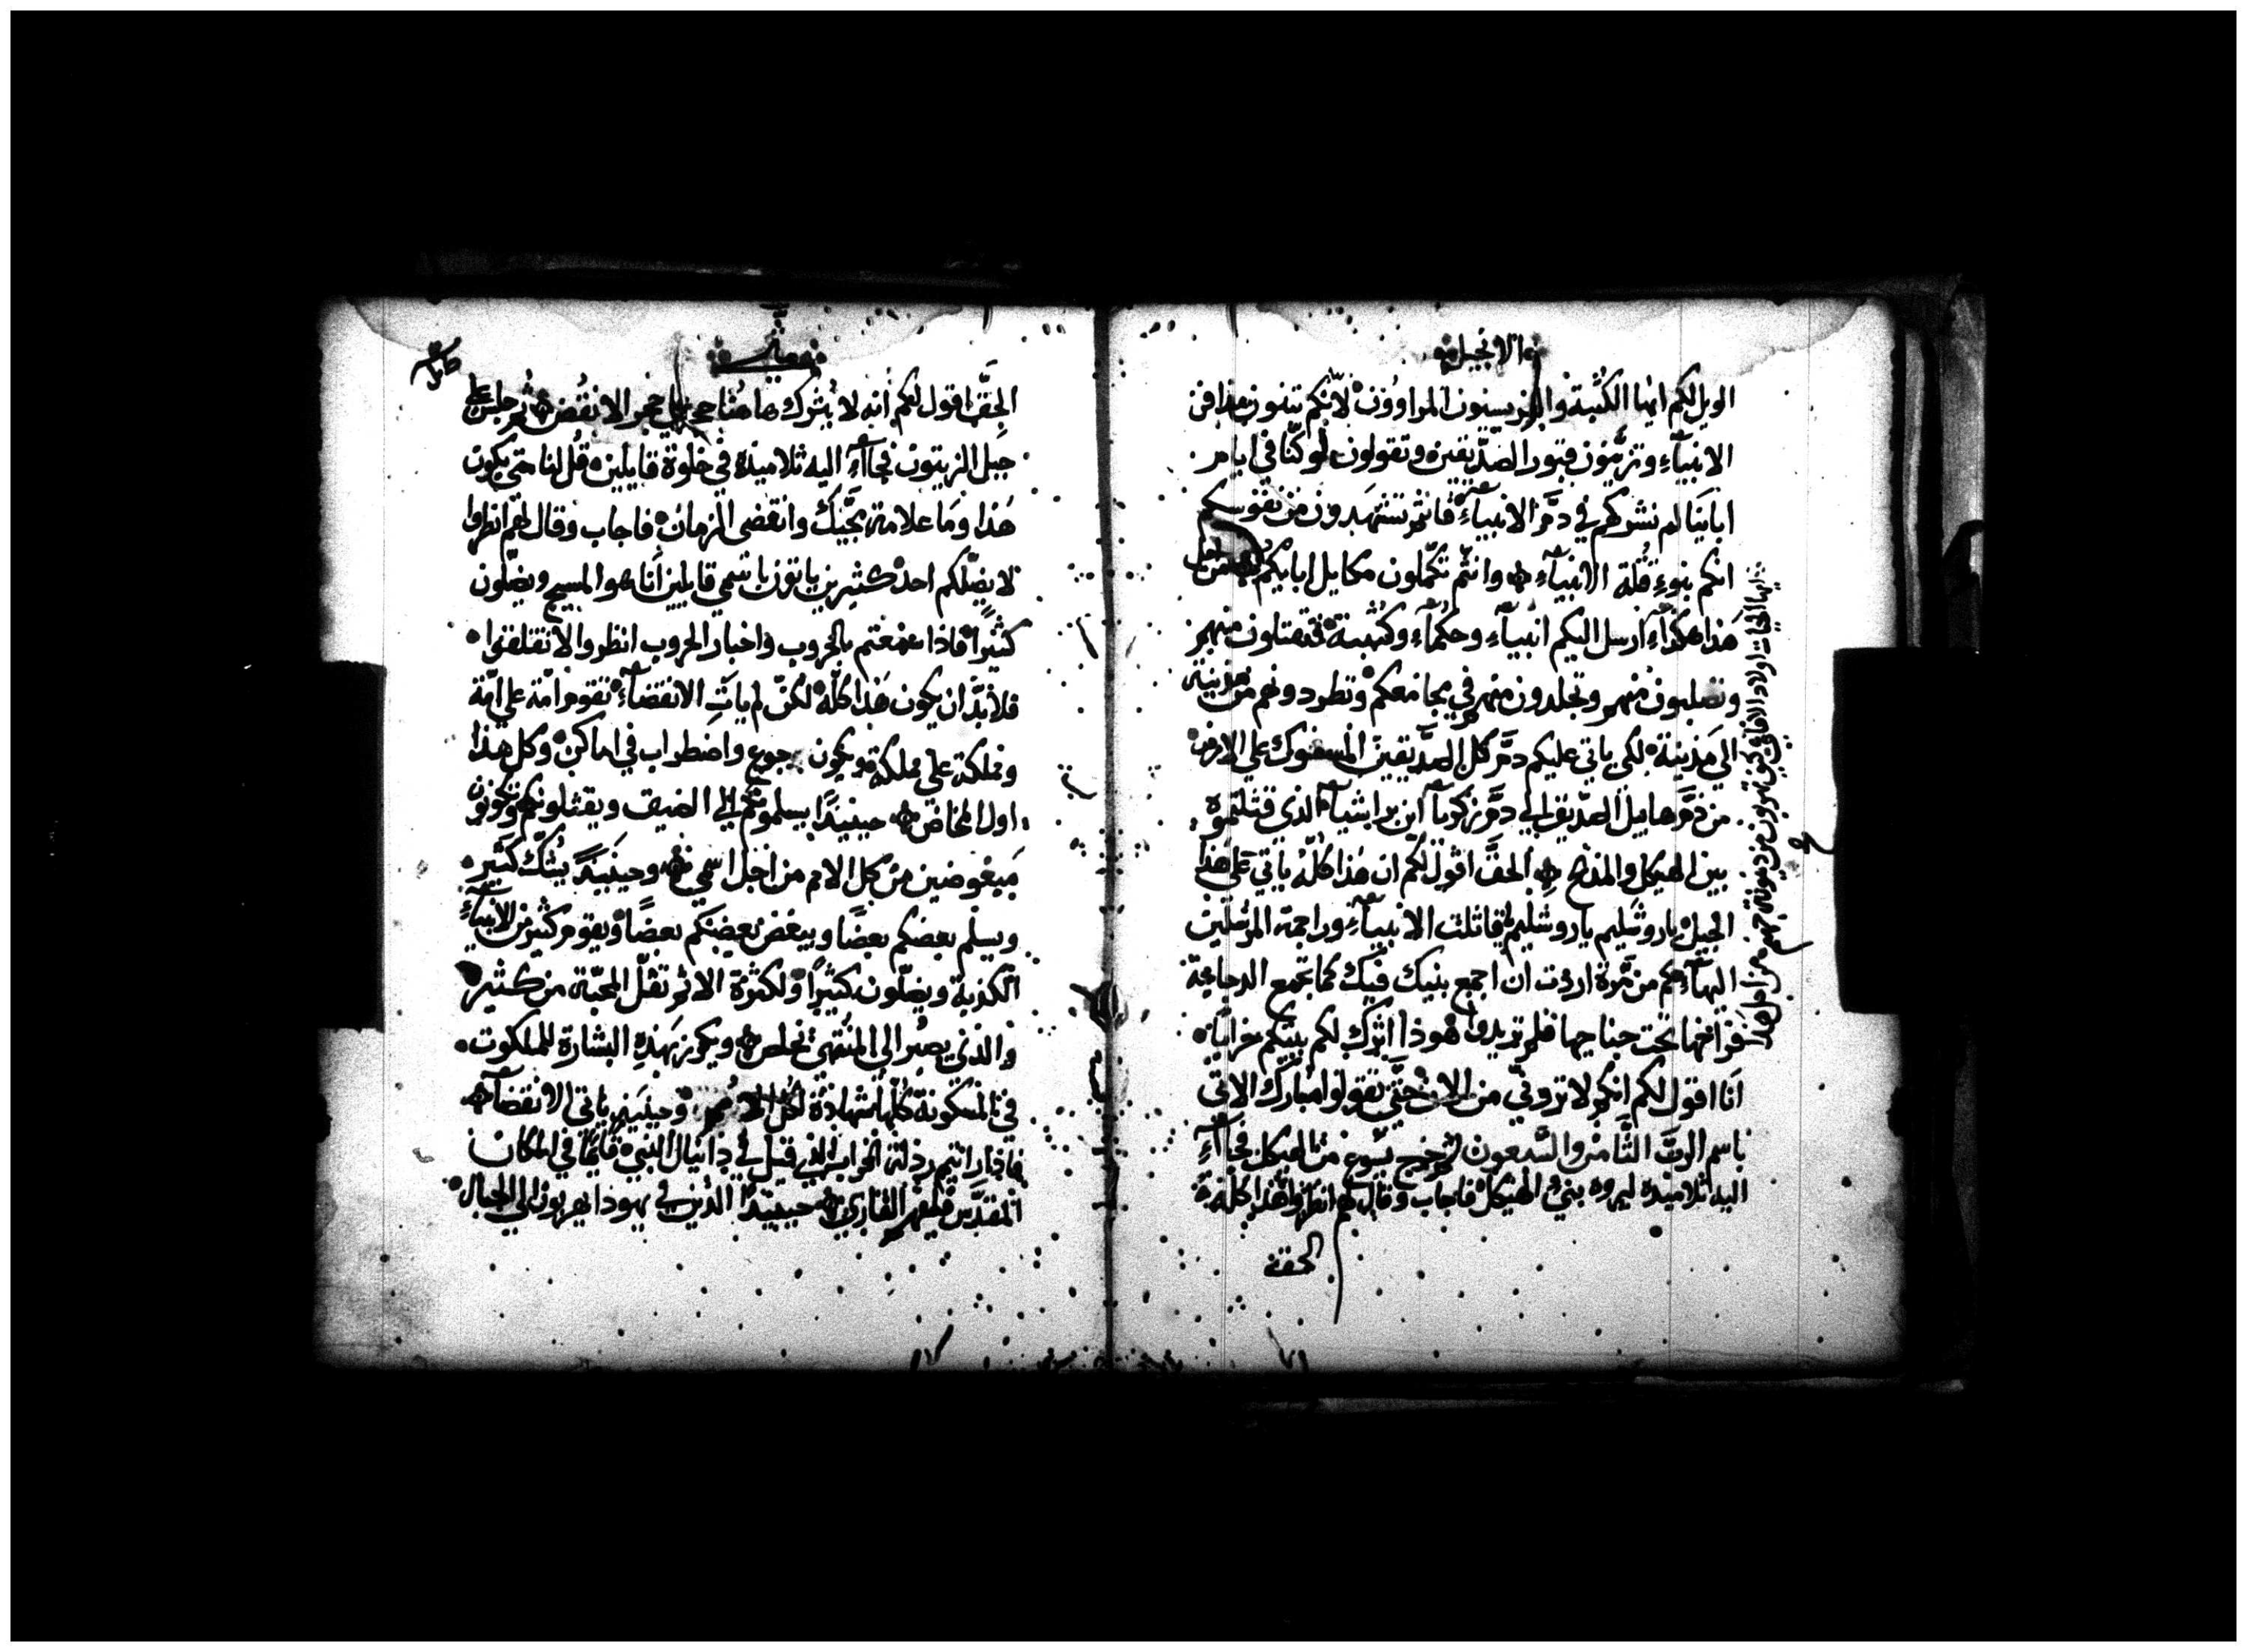 والانجيل
الويل لكم ايها الكتبة والفريسيون المراوون لانكم تبنون مدافن
الانبيآء وتزينون قبور الصديقين وتقولون لو كنا في ايام
ابانيا لم نشركهم في دم الانبيآء فانتم تشهدون من نفوسكم
انكم بنوء قتلة الانبيآء وانتم تكملون مكايل اباءيكم من اجل
هذا هكذآء ارسل اليكم انبيآء وحكمآء وكتبة فتقتلون منهم
وتصلبون منهم وتجلدون منهم في مجامعكم وتطردونهم من مدينة
الي مدينة لكي ياتي عليكم دم كل الصديقين المسفوك علي الارض
من دم هابيل الصديق الي دم زكريآ ابن براشيآ الذي قتلتموه
بين الهيكل والمذبح الحق اقول لكم ان هذا كله ياتي علي هذا
الجيل يا روشليم يا روشليم يا قاتلت الانبيآء وراجمة المرسلين
اليهآ كم من مرة اردت ان اجمع بنيك فيك كما تجمع الدجاجة
فراخها تحت جناحيها فلم تريدوا هوذا اترك لكم بيتكم خرابا
انا اقول لكم انكم لا تروني من الان حتي تقولوا مبارك الاتي
باسم الرب الثامن والسبعون ثم خرج يسوع من الهيكل فجآء
اليه تلاميذه ليروه بنيء الهيكل فاجاب وقال لهم انظروا هذا كله
الحق
ايها الحيات اولاد الافاعي كيف تهربون من دينونة جهنم من اجل هذا
الحق اقول لكم انه لا يترك هاهنا حجر علي حجر الا نقض ثم جلس علي
جبل الزيتون فجآء اليه تلاميذه في خلوة قايلين قل لنا متي يكون
هذا وما علامة مجيك وانقضى الزمان فاجاب وقال لهم انظروا
لا يضلكم احد كثيرين ياتون باسمي قايلين انا هو المسيح ويضلون
كثيرا فاذا سمعتم بالحروب واخبار الحروب انظروا لا تقلقوا
فلابد ان يكون هذا كله لكن لم يات الانقضآء تقوم امة علي امة
ومملكة علي مملكة ويكون جوع واضطراب في اماكن وكل هذا
اول المخاض حينيذا يسلمونكم الي الضيق ويقتلونكم وتكونون
مبغوضين من كل الامم من اجل اسمي وحينيذ يشك كثير
ويسلم بعضكم بعضا ويبغض بعضكم بعضا ويقوم كثير من الانبيآء
الكذبة ويضلون كثيرا ولكثرة الاثم تقل المحبة من كثير
والذي يصبر الي المنتهى يخلص ويكرز بهذه البشارة للملكوت
في المسكونة كلها شهادة لكل الامم وحينيذ ياتي الانقضآ
فاذا رايتم رذلة الخراب الذي قيل في دانيال النبي قايما في المكان
المقدس فليفهم القاري حينيذا الذين في يهودا يهربون الي الجبال